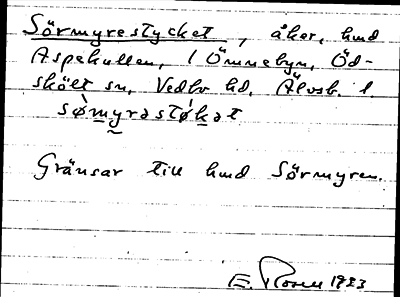 Sörmyrestycket, åker, hmd
Aspekullen, 1 Ömnebyn, Öd-
skölt sn, Vedbo hd, Älvsb. l.
sø̀myrastø̍kat
Gränsar till hmd Sörmyren.
E. Rosell 1923